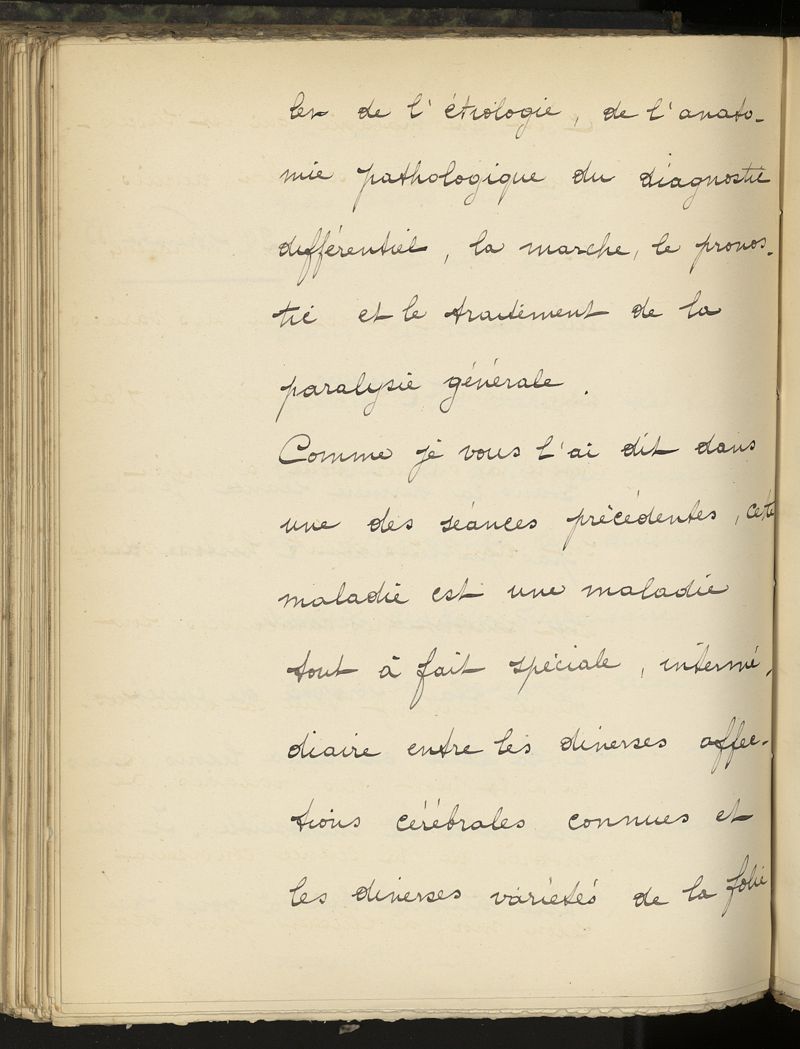 ler de l'étiologie, de l'anato-
mie pathologique du diagnostic
différentiel, la marche, le pronos-
tic et le traitement de la
paralysie générale.
Comme je vous l'ai dit dans
une des séances précédentes, cette
maladie est une maladie
tout à fait spéciale, intermé-
diaire entre les diverses affec-
tions cérébrales connues et
les diverses variétés de la folie